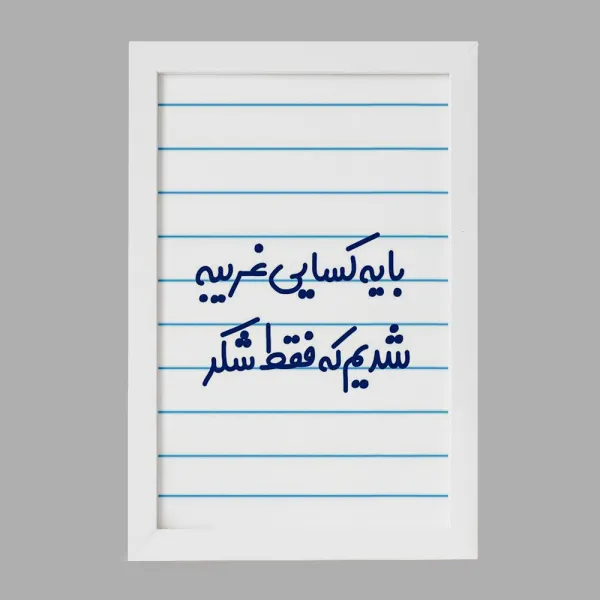 بایه کسایی غریبه
شدیم که فقط شکر